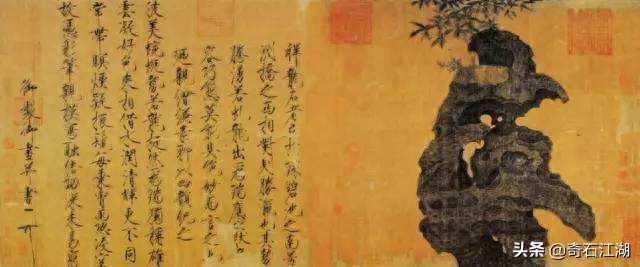 祥龍石者立於環碧池之南芳
洲橋之西相對則勝瀛也其勢
騰湧若虬龍出為瑞應之狀奇
容巧態莫能具絕妙而言之也
廼親繪縑素聊以四韻紀之
彼美蜿蜒勢若龍挺然為瑞獨稱雄
雲凝好色來相借水潤清輝更不同
常帶暝煙疑振鬣每乘宵雨恐凌空
故憑彩筆親模寫融結功深未易窮
御製御畫并書
头条 @奇石江湖